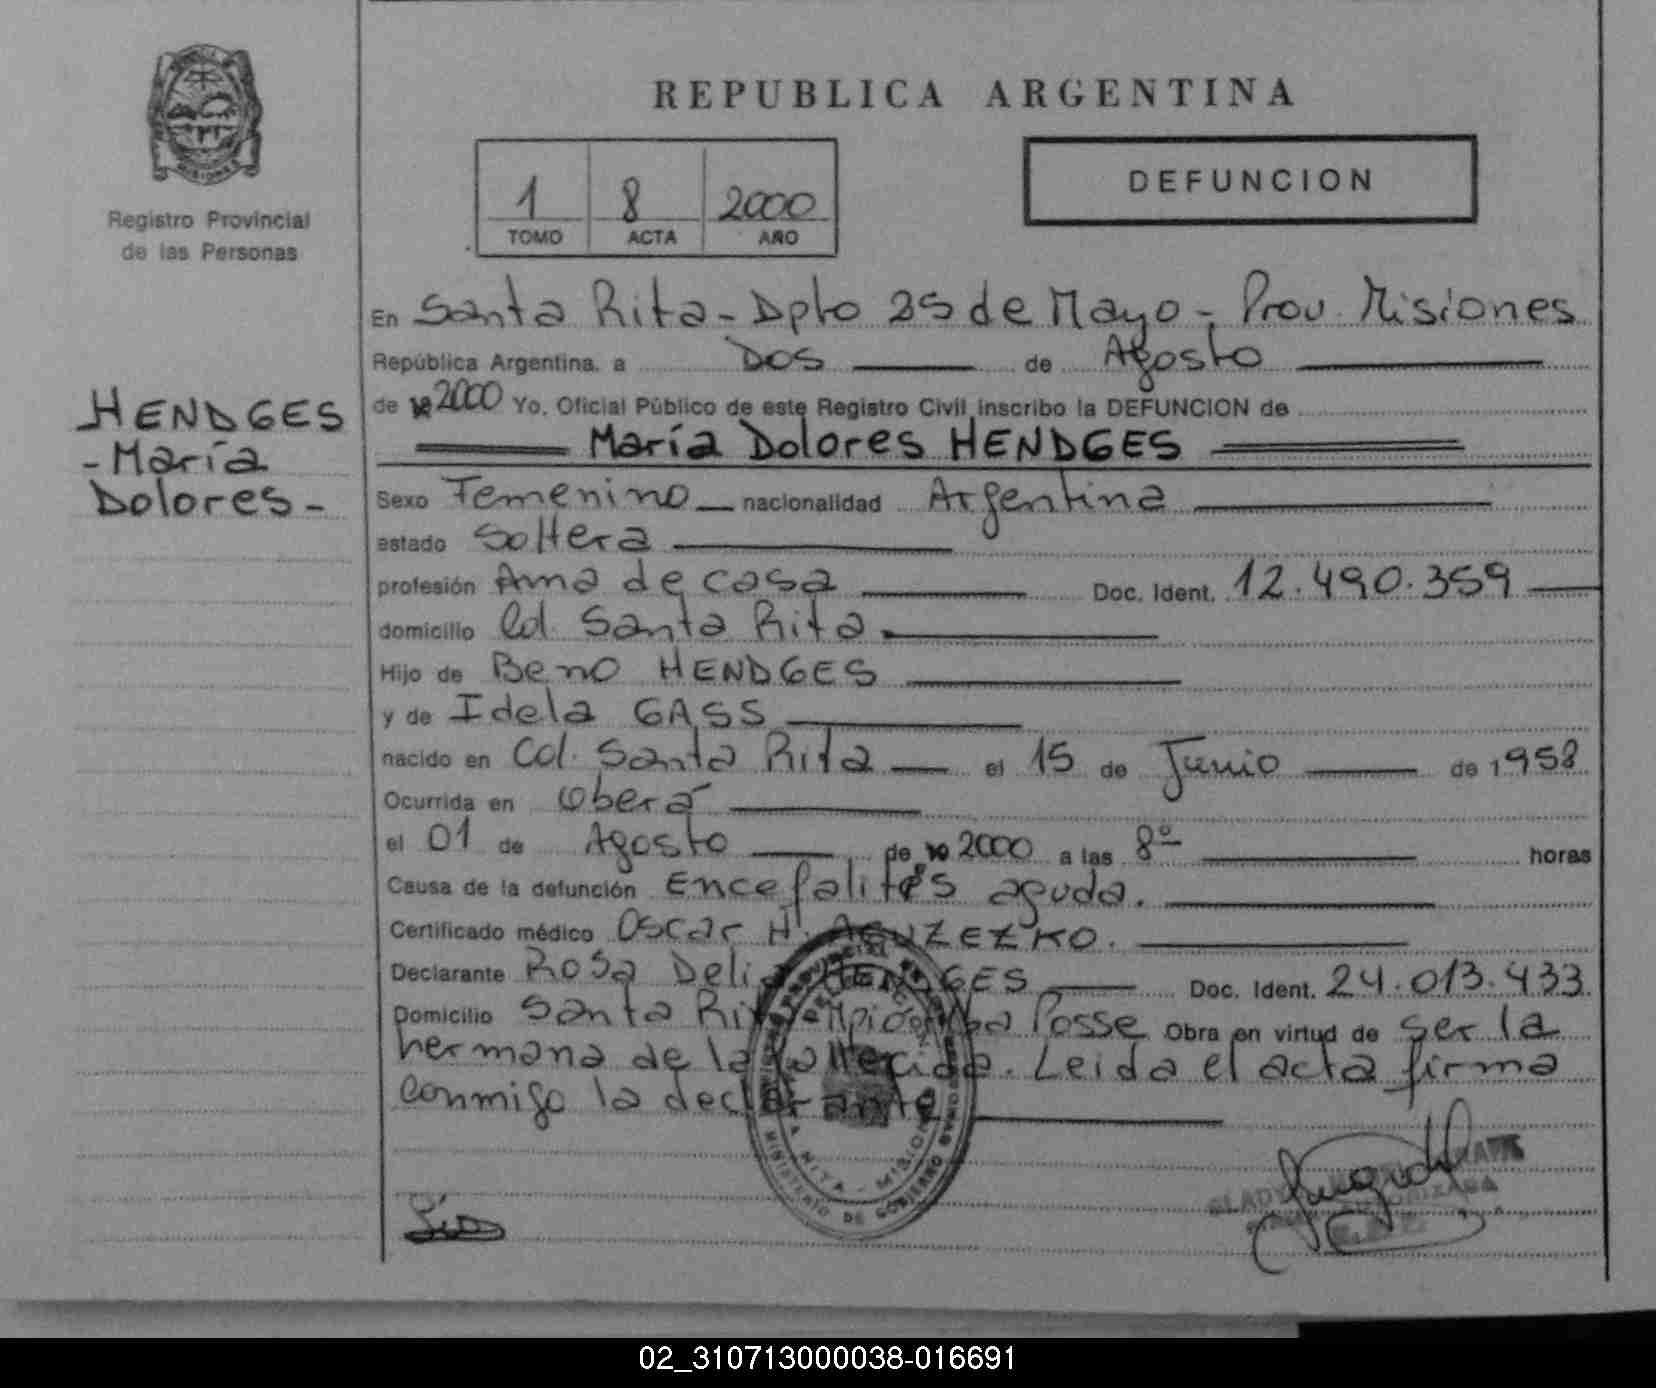 REPUBLICA ARGENTINA
1 8 2000
TOMO ACTA AÑO
DEFUNCION
Registro Provincial
de las Personas
HENDGES
- María
Dolores -
En Santa Rita - Dpto 25 de Mayo - Prov. Misiones
República Argentina, a Dos de Agosto
de 2000 Yo, Oficial Público de este Registro Civil inscribo la DEFUNCION de
María Dolores HENDGES
Sexo Femenino nacionalidad Argentina
estado Soltera
profesión Ama de casa Doc. Ident. 12.490.359
domicilio Col. Santa Rita
Hijo de Beno HENDGES
y de Idela GASS
nacido en Col. Santa Rita el 15 de Junio de 1958
Ocurrida en Oberá
el 01 de Agosto de 2000 a las 8º horas
Causa de la defunción Encefalitis aguda.
Certificado médico Oscar H.
Declarante Rosa Delia HENDGES Doc. Ident. 24.013.433
Domicilio Santa Rita Posse Obra en virtud de ser la
hermana de la fallecida. Leida el acta firma
conmigo la declarante
MINISTERIO DE GOBIERNO
02_310713000038-016691